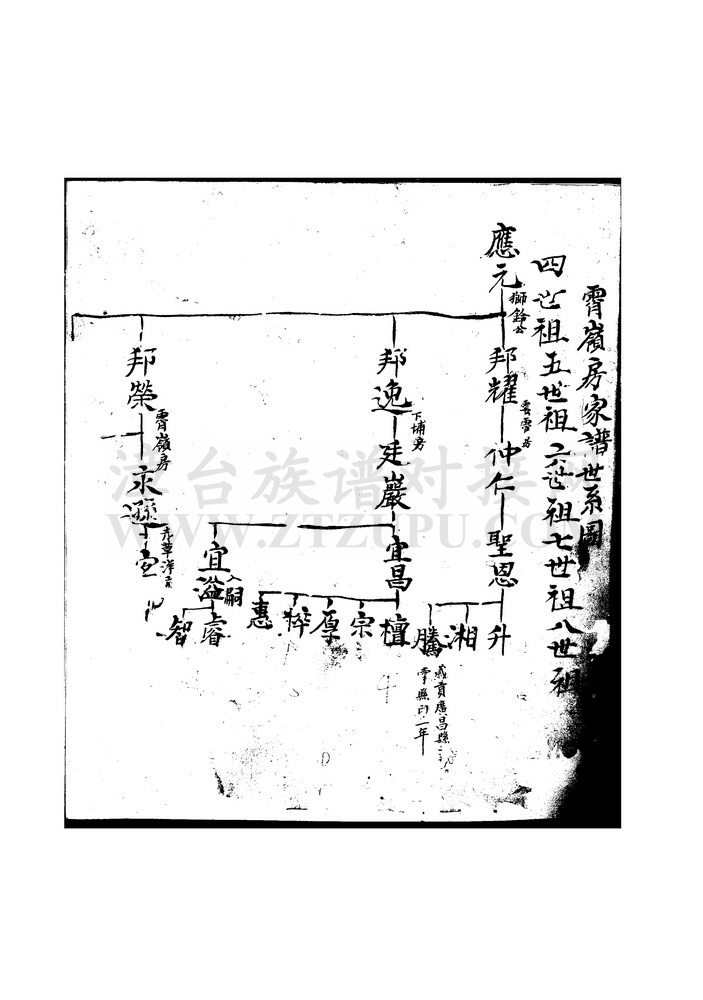 霄嶺房家譜世系圖
四世祖五世祖六世祖七世祖八世祖
應元
獅鈴公
邦耀
仲仁
聖恩
升
湘
騰
歲貢廣昌縣
掌縣印一年
邦逸
下埔房
廷巖
宜昌
檀
宗
厚
粹
惠
宜溢
入嗣
睿
智
邦榮
霄嶺房
永遜
WWW.ZTZUPU.COM